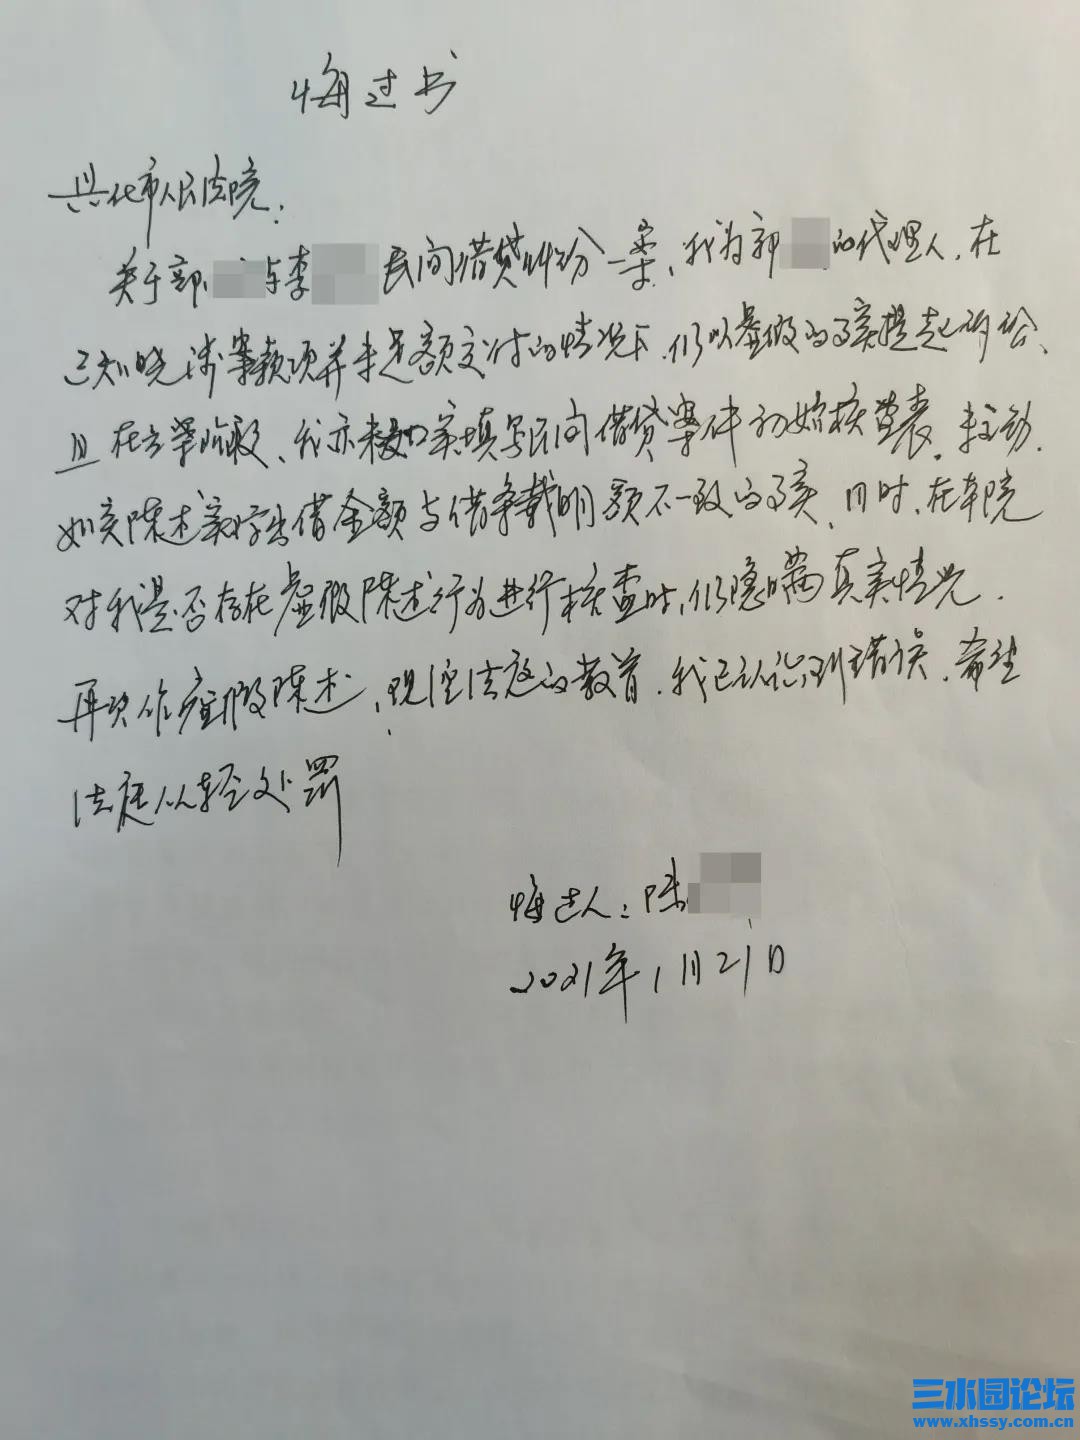 悔过书
兴化市人民法院:
关于郭 与李 民间借贷纠纷一案,我为郭 的代理人,在
已知晓涉案款项并未足额交付的情况下,仍以虚假的事实提起诉讼、
且在立案阶段,我亦未如实填写民间借贷案件初始核查表,未主动、
如实陈述实际出借金额与借条载明额不一致的事实,同时,在本院
对我是否存在虚假陈述行为进行核查时,仍隐瞒真实情况.
再次作虚假陈述,现经法庭的教育,我已认识到错误,希望
法庭从轻处罚
悔过人:陈
2021年1月21日
三水园论坛
www.xhssy.com.cn